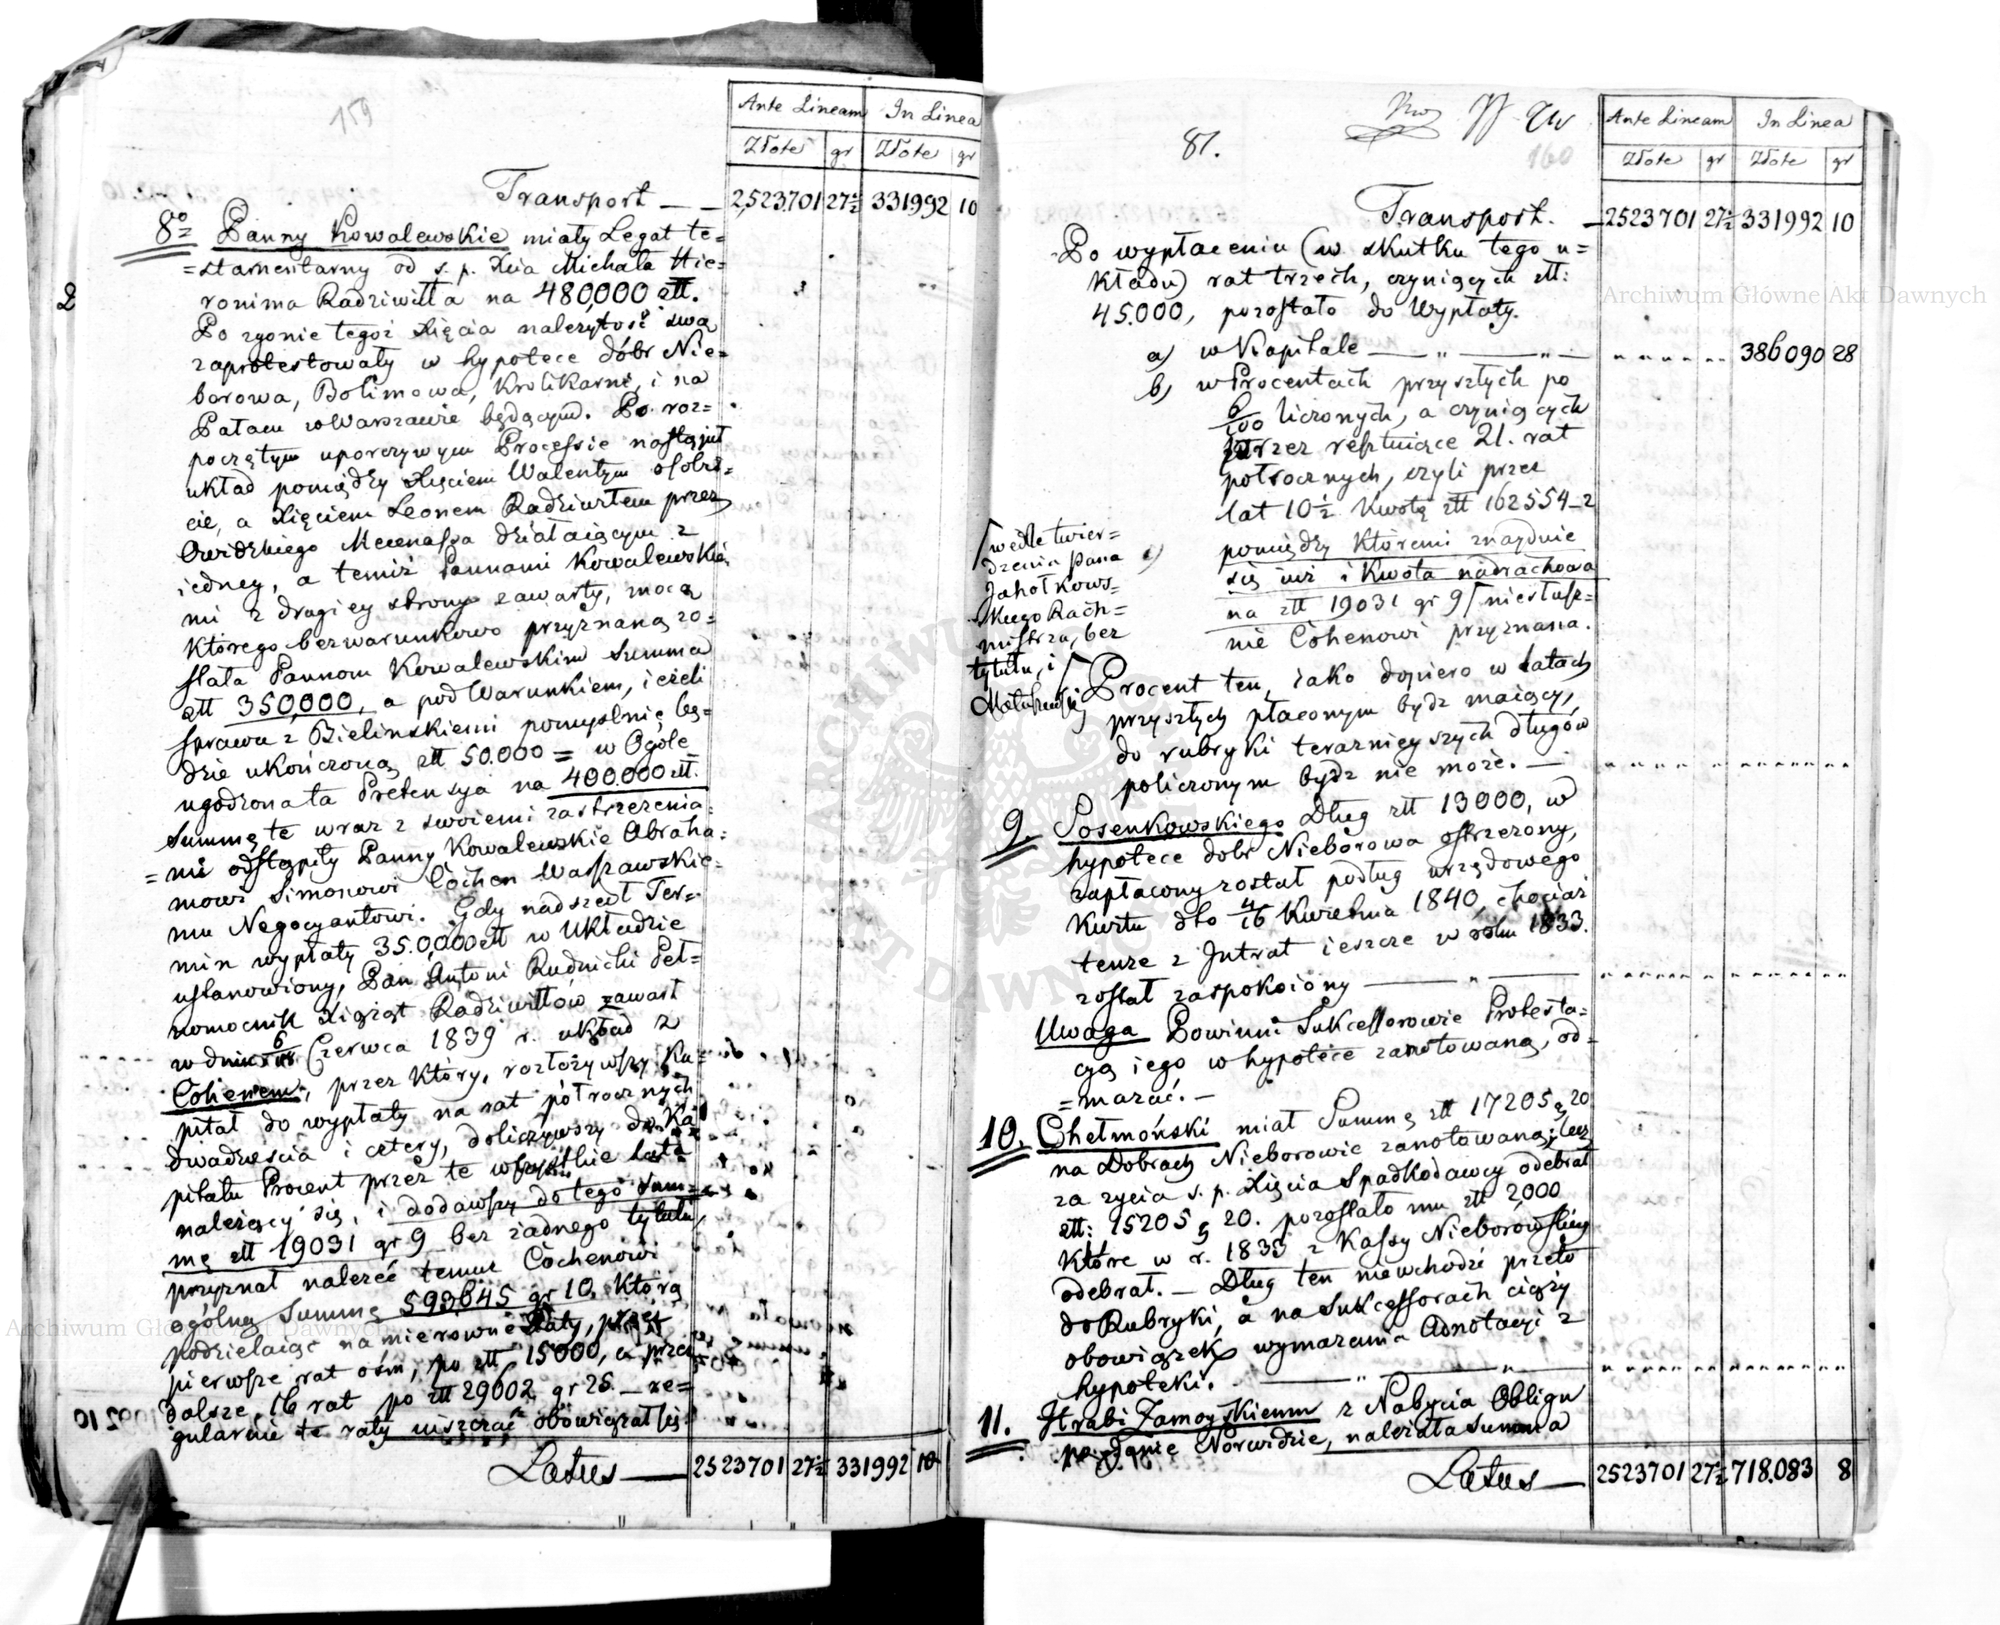 159
Ante Lineam In Linea
Złote gr Złote gr
Transport — — 2,523,701 27½ 331992 10
8º Panny Kowalewskie miały Legat te=
=stamentarny od s. p. Xcia Michała Hie=
ronima Radziwiłła na 480,000 złł.
Po zgonie tegoż Xięcia należytość swą
zaprotestowały w hypotece dóbr Nie=
borowa, Bolimowa, Krolikarni, i na
Pałacu w Warszawie będącym. Po roz=
poczętym uporczywym Processie nastąpił
układ pomiędzy Xięciem Walentym osobi=
cie, a Xięciem Leonem Radziwiłłem przez
Owidzkiego Mecenassa działaiącym z
iedney, a temiż Pannami Kowalewskie
mi z drugiey strony zawarty, mocą
którego bezwarunkowo przyznaną zo=
stała Pannom Kowalewskim Summa
złł 350,000, a pod Warunkiem, ieżeli
sprawa z Bielinskiemi pomyslnie bę=
dzie ukończoną złł 50.000 = w Ogóle
ugodzona ta Pretensya na 400.000 złł.
Summę te wraz z swoiemi zastrzezenia=
= mi odstąpiły Panny Kowalewskie Abraha=
mowi Simonowi Cöhen Warszawskie=
mu Negocyantowi. Gdy nadszedł Ter=
min wypłaty 35.0,000 złł w Układzie
ustanowiony, Pan Antoni Rudnicki Peł=
nomocnik Xiążąt Radziwiłłów zawarł
w dniu 6/18 Czerwca 1839 r. układ z
Cöhenem, przez który, rozłożywszy Ka=
pitał do wypłaty na rat półrocznych
dwadzieścia i cztery, doliczywszy do Ka
pitału Procent przez te wszystkie lata
należący się, i dodawszy do tego sum=
mę złł 19031 gr 9 bez żadnego tytułu
przyznał należeć temuż Cöhenowi
ogólną Summę 593,645 gr 10. którą
podzielaiąc na nierowne Raty, przez
pierwsze rat ośm, po złł 15000, a przez
dalsze 16 rat po złł 29002 gr 25 — re=
gularnie te raty uiszczać obowiązał się
Latus — 2523701 27½ 331992 10
81.
160
Ante Lineam In Linea
Złote gr Złote gr
Transport. — 2523701 27½ 331992 10
Po wypłaceniu (w skutku tego u=
kładu) rat trzech, czyniących złł:
45.000, pozostało do Wypłaty.
a) w Kapitale — „ — „ — 386090 28
b) w Procentach przyszłych po
6/100 liczonych, a czyniących
przez resztuiące 21. rat
półrocznych, czyli przez
lat 10½ Kwotę złł 162554_2
pomiędzy któremi znayduie
się iuż i Kwota nadrachowa
na złł 19031 gr 9 / niesłusz=
nie Cöhenowi przyznana.
/ wedle twier=
dzenia Pana
Jahołkows=
kiego Rach=
mistrza, bez
tytułu, i
Procent ten, iako dopiero w Latach
przyszłych płaconym bydz maiący,
do rubryki teraznieyszych długów
policzonym bydz nie może. —
9. Sosenkowskiego Dług złł 13000, w
hypotece dobr Nieborowa ostrzezony,
zapłacony został podług urzędowego
Kwitu dto 4/16 Kwietnia 1840, chociaż
tenze z Intrat ieszcze w roku 1833.
został zaspokoiony — „ —
Uwaga Powinni Sukcessorowie Protesta=
cyą iego w hypotece zanotowaną, od=
= mazać. —
10. Chełmoński miał Summę złł 17205 g 20
na Dobrach Nieborowie zanotowaną; lecz
za zycia s. p. Xięcia Spadkodawcy odebrał
złł: 15205 g 20. pozostało mu złł 2,000
które w r. 1833 z Kassy Nieborowskiey
odebrał. — Dług ten niewchodzi przeto
do Rubryki, a na Sukcessorach ciąży
obowiązek wymazania Adnotacyi z
hypoteki. — „ — „ —
11. Hrabi Zamoyskiemu z Nabycia Obligu
po Janie Norwidzie, należała Summa
Latus — 2523701 27½ 718.083 8
Archiwum Główne Akt Dawnych
Archiwum Główne Akt Dawnych
ARCHIWUM GŁÓWNE AKT DAWNYCH